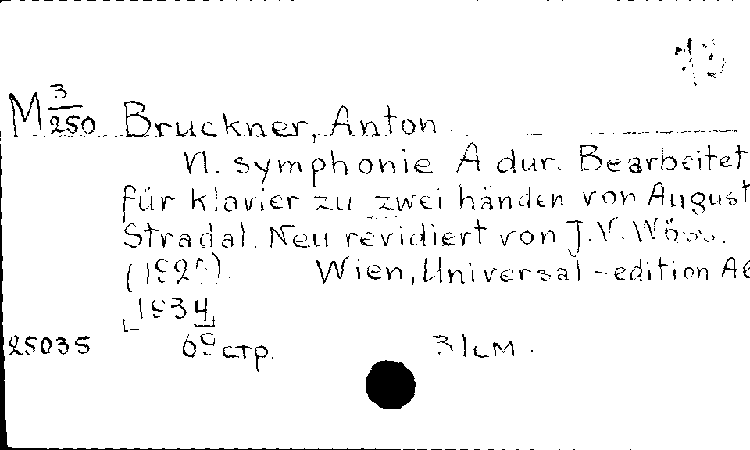 13
M 3/250 Bruckner, Anton
VI. symphonie A dur. Bearbeitet
für klavier zu zwei händen von August
Stradal. Neu revidiert von J.V. Wöss.
Wien, Universal-edition AG
[1934]
25035 69 стр. 31 см.